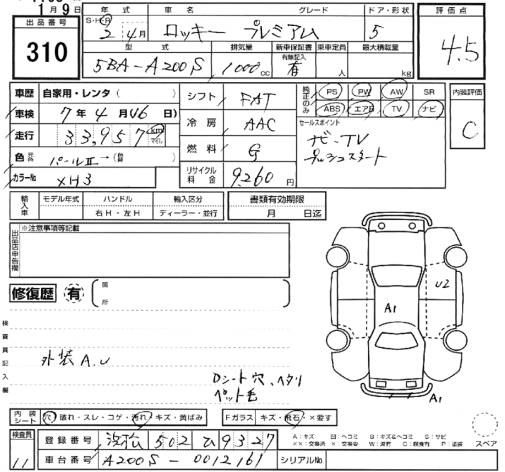 1月9日
出品番号 310
年式 車名 グレード ドア・形状 評価点
S・H・R 2年4月 ロッキー プレミアム 5 4.5
型式 排気量 新車保証書 乗車定員 最大積載量
有無記入
5BA-A200S 1000cc 有 人 kg
車歴 自家用・レンタ( ) シフト FAT 純正のみ PS PW AW SR 内装評価
車検 7年4月16日) ABS エアB TV ナビ C
走行 33,957 km マイル 冷房 AAC セールスポイント
ナビ・TV
プッシュスタート
色 パールII→ 燃料 G
カラーNo XH3 リサイクル料金 9,260円
輸入車 モデル年式 ハンドル 輸入区分 書類有効期限
右H・左H ディーラー・並行 月 日迄
出品店申告欄 ※注意事項等記載
修復歴 有 箇所
U2
A1
検査員記入欄
外装A.U
Dシート穴、ヘタリ
ペット毛
A1
内装シート 穴 破れ・スレ・コゲ・汚れ キズ・黄ばみ Fガラス キズ・飛石・×要す
検査員 11
登録番号 浜松 502 ひ 9327
スペア
車台番号 A200S-0012161 シリアルNo.